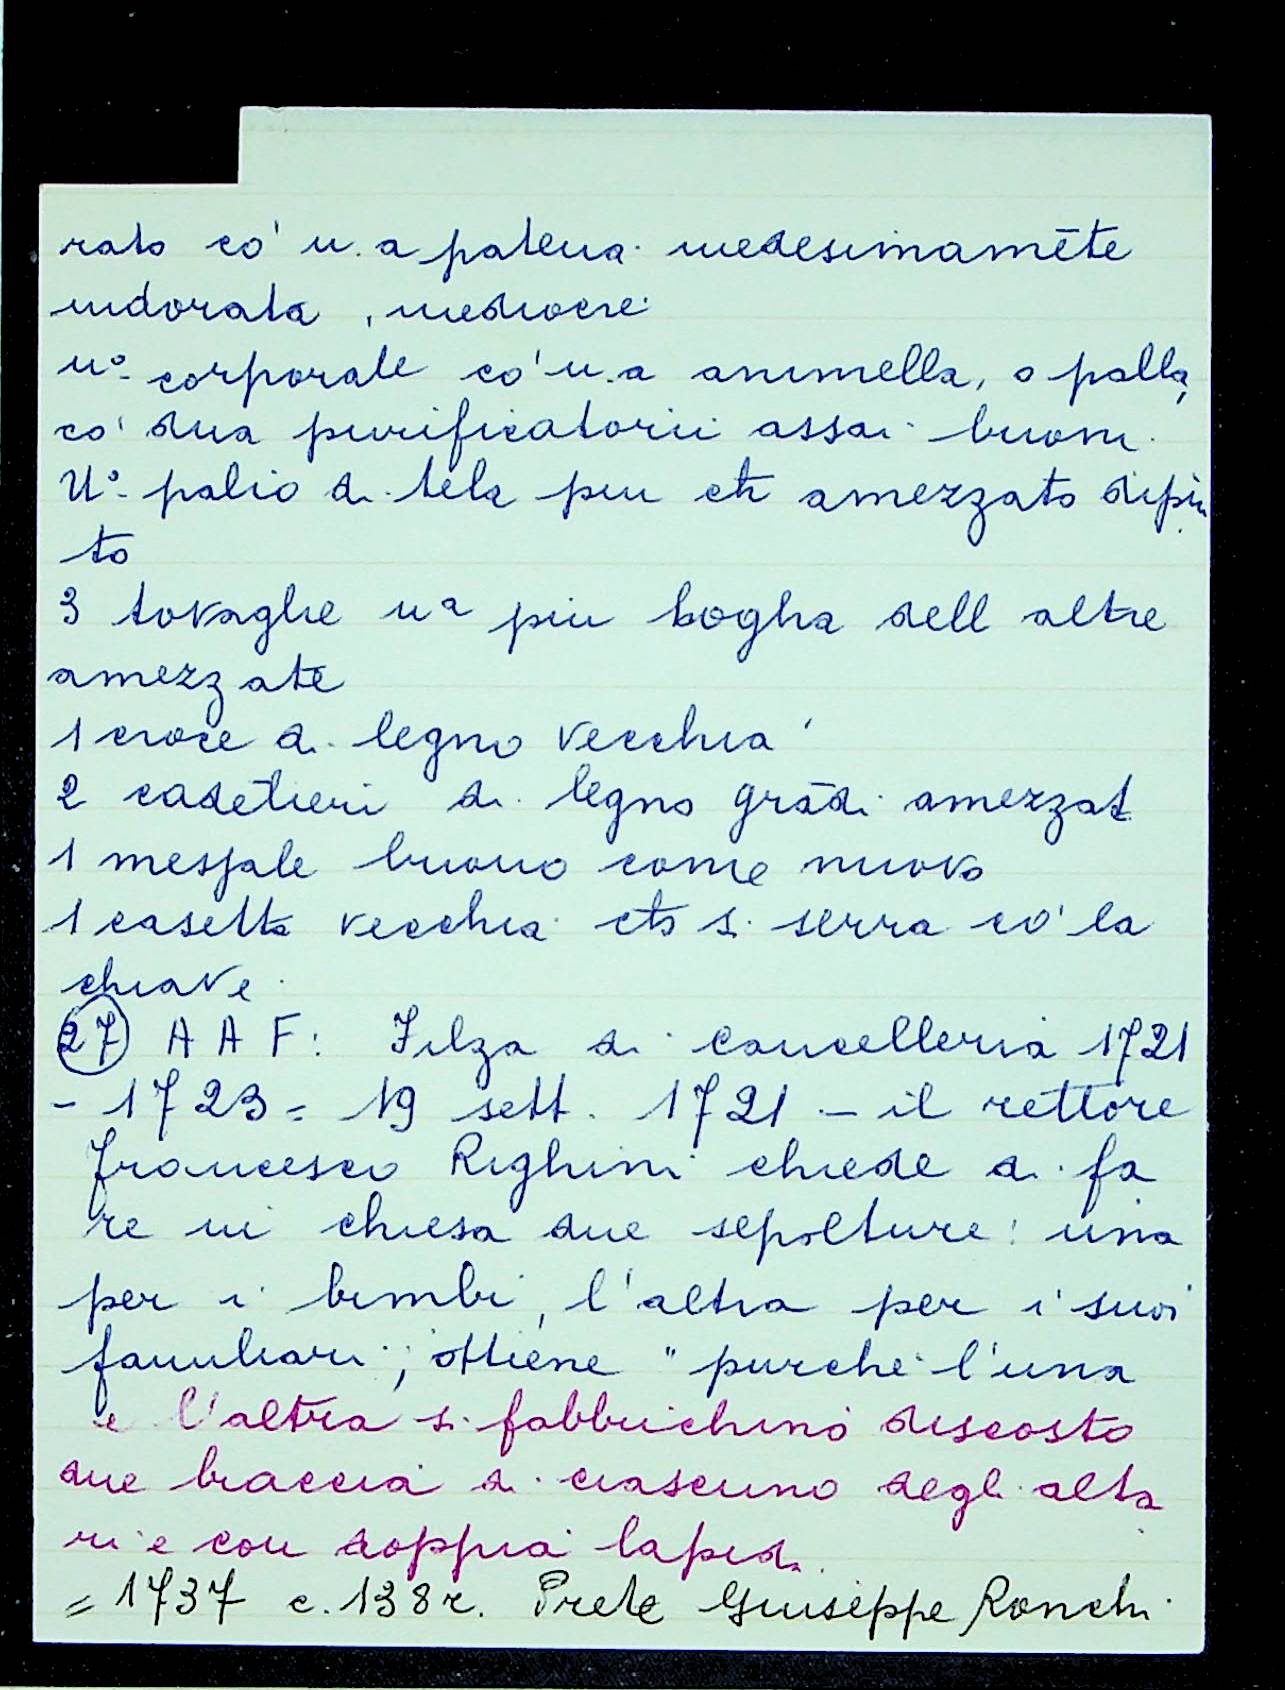 rato co' u.a patena medesimamēte
indorata, mediocre
uº corporale co' u.a animella, o palla,
co' dua purificatorii assai buoni
Uº palio di tela piu ch amezzato dipin
to
3 tovaglie uª piu logha dell altre
amezzate
1 croce di legno vecchia
2 cadēlieri di legno grādi amezzat
1 messale buono come nuovo
1 casetta vecchia ch si serra co' la
chiave
27 A A F: Filza di cancelleria 1721
- 1723 = 19 sett. 1721 - il rettore
Francesco Righini chiede di fa
re in chiesa due sepolture: una
per i bimbi, l'altra per i suoi
familiari; ottiene "purché l'una
e l'altra si fabbrichino discosto
due braccia di ciascuno degli alta
ri e con doppia lapid.
= 1737 c. 138r. Prete Giuseppe Ronchi